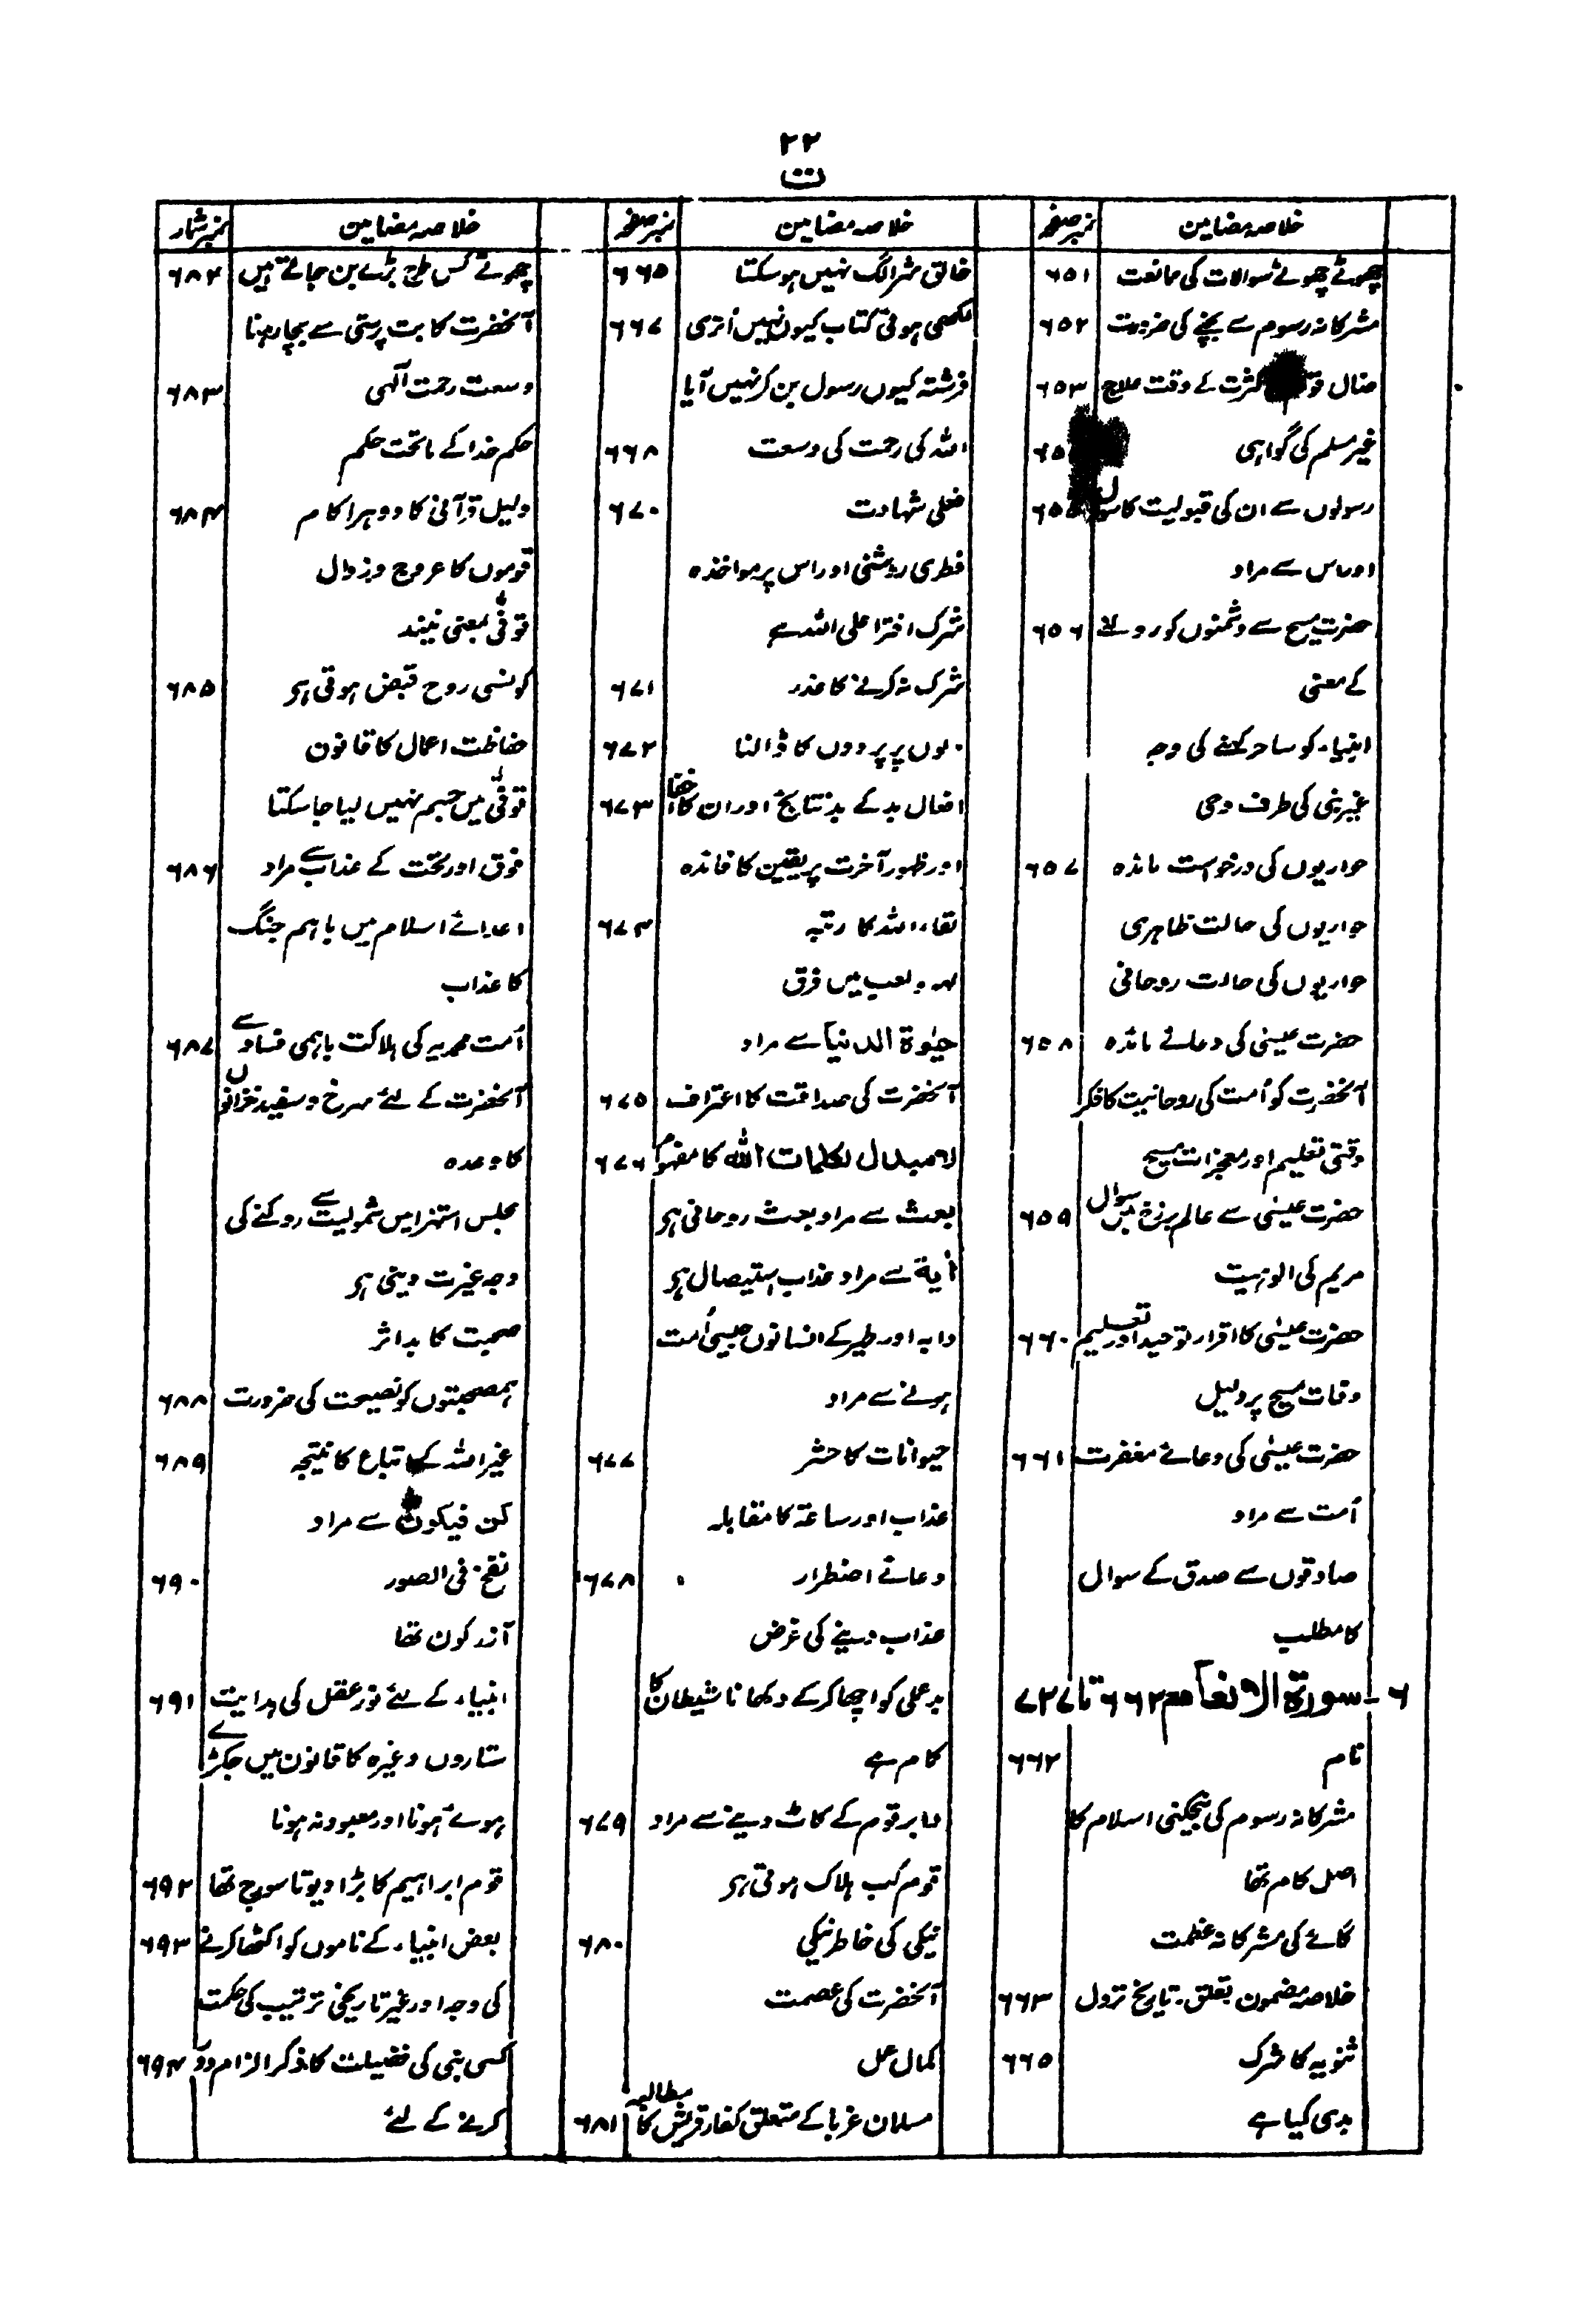 ۲۲
ت
خلاصہ مضامین نمبر صفحہ
چھوٹے چھوٹے سوالات کی ممانعت ۶۵۱
مشرکانہ رسوم سے بچنے کی ضرورت ۶۵۲
ضال کثرت کے وقت علاج ۶۵۳
غیر مسلم کی گواہی
رسولوں سے ان کی قبولیت کا سوال ۶۵۵
اور اس سے مراد
حضرت مسیح سے دشمنوں کو روکنے ۶۵۶
کے معنی
انبیاء کو ساحر کہنے کی وجہ
غیر نبی کی طرف وحی
حواریوں کی درخواست مائدہ ۶۵۷
حواریوں کی حالت ظاہری
حواریوں کی حالت روحانی
حضرت عیسٰی کی دعائے مائدہ ۶۵۸
آنحضرت کو اُمت کی روحانیت کا فکر
وقتی تعلیم اور معجزات مسیح
حضرت عیسٰی سے عالم برزخ میں سوال ۶۵۹
مریم کی الوہیت
حضرت عیسٰی کا اقرار توحید اور تعلیم ۶۶۰
وفات مسیح پر دلیل
حضرت عیسٰی کی دعائے مغفرت ۶۶۱
اُمت سے مراد
صادقوں سے صدق کے سوال
کا مطلب
۶ - سورۃ الانعام ۶۶۲ تا ۷۲۷
نام ۶۶۲
مشرکانہ رسوم کی بیخکنی اسلام کا
اصل کام تھا
گائے کی مشرکانہ عظمت
خلاصہ مضمون تعلق۔ تاریخ نزول ۶۶۳
ثنویہ کا شرک ۶۶۵
بدی کیا ہے
خلاصہ مضامین نمبر صفحہ
خالق شر الگ نہیں ہو سکتا ۶۶۵
لکھی ہوئی کتاب کیوں نہیں اُتری ۶۶۷
فرشتہ کیوں رسول بن کر نہیں آیا
اللہ کی رحمت کی وسعت ۶۶۸
فعلی شہادت ۶۷۰
فطری روشنی اور اس پر مواخذہ
شرک افترا علی اللہ ہے
شرک نہ کرنے کا عذر ۶۷۱
دلوں پر پردوں کا ڈالنا ۶۷۲
افعال بد کے بد نتایج اور ان کا اخفا ۶۷۳
اور ظہور آخرت پر یقین کا فائدہ
لقاء اللہ کا رتبہ ۶۷۴
لہو ولعب میں فرق
حیٰوۃ الدنیا سے مراد
آنحضرت کی صداقت کا اعتراف ۶۷۵
لا مبدل لکلمات اللہ کا مفہوم ۶۷۶
بعث سے مراد بعث روحانی ہو
اٰیة سے مراد عذاب استیصال ہو
دابہ اور طیر کے انسانوں جیسی اُمت
ہونے سے مراد
حیوانات کا حشر ۶۷۷
عذاب اور ساعۃ کا مقابلہ
دعائے اضطرار ۶۷۸
عذاب دینے کی غرض
بدعملی کو اچھا کرکے دکھانا شیطان کا
کام ہے
دابر قوم کے کاٹ دینے سے مراد ۶۷۹
قوم کب ہلاک ہوتی ہو
نیکی کی خاطر نیکی ۶۸۰
آنحضرت کی عصمت
کمال عمل
مسلمان غربا کے متعلق کفار قریش کا مطالبہ ۶۸۱
خلاصہ مضامین نمبر شمار
چھوٹے کس طرح بڑے بن جاتے ہیں ۶۸۲
آنحضرت کا بت پرستی سے بچا رہنا
وسعت رحمت الٰہی ۶۸۳
حکم خدا کے ماتحت حکم
دلیل قرآنی کا دوہرا کام ۶۸۴
قوموں کا عروج وزوال
توفّی بمعنی نیند
کونسی روح قبض ہوتی ہو ۶۸۵
حفاظت اعمال کا قانون
توفّی میں جسم نہیں لیا جا سکتا
فوق اور تحت کے عذاب سے مراد ۶۸۶
اعدائے اسلام میں باہم جنگ
کا عذاب
اُمت محمدیہ کی ہلاکت باہمی فساد سے ۶۸۷
آنحضرت کے لئے سرخ وسفید خزانوں
کا وعدہ
مجلس استہزا میں شمولیت سے روکنے کی
وجہ غیرت دینی ہو
صحبت کا بد اثر
ہمصحبتوں کو نصیحت کی ضرورت ۶۸۸
غیر اللہ کے اتباع کا نتیجہ ۶۸۹
کن فیکون سے مراد
نفخ فی الصور ۶۹۰
آزر کون تھا
انبیاء کے لئے نور عقل کی ہدایت ۶۹۱
ستاروں وغیرہ کا قانون میں جکڑے
ہوئے ہونا اور معبود نہ ہونا
قوم ابراہیم کا بڑا دیوتا سورج تھا ۶۹۲
بعض انبیاء کے ناموں کو اکٹھا کرنے ۶۹۳
کی وجہ اور غیر تاریخی ترتیب کی حکمت
کسی نبی کی فضیلت کا ذکر الزام دور ۶۹۴
کرنے کے لئے